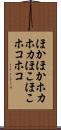 ほかほかホカ
ホカほこほこ
ホコホコ